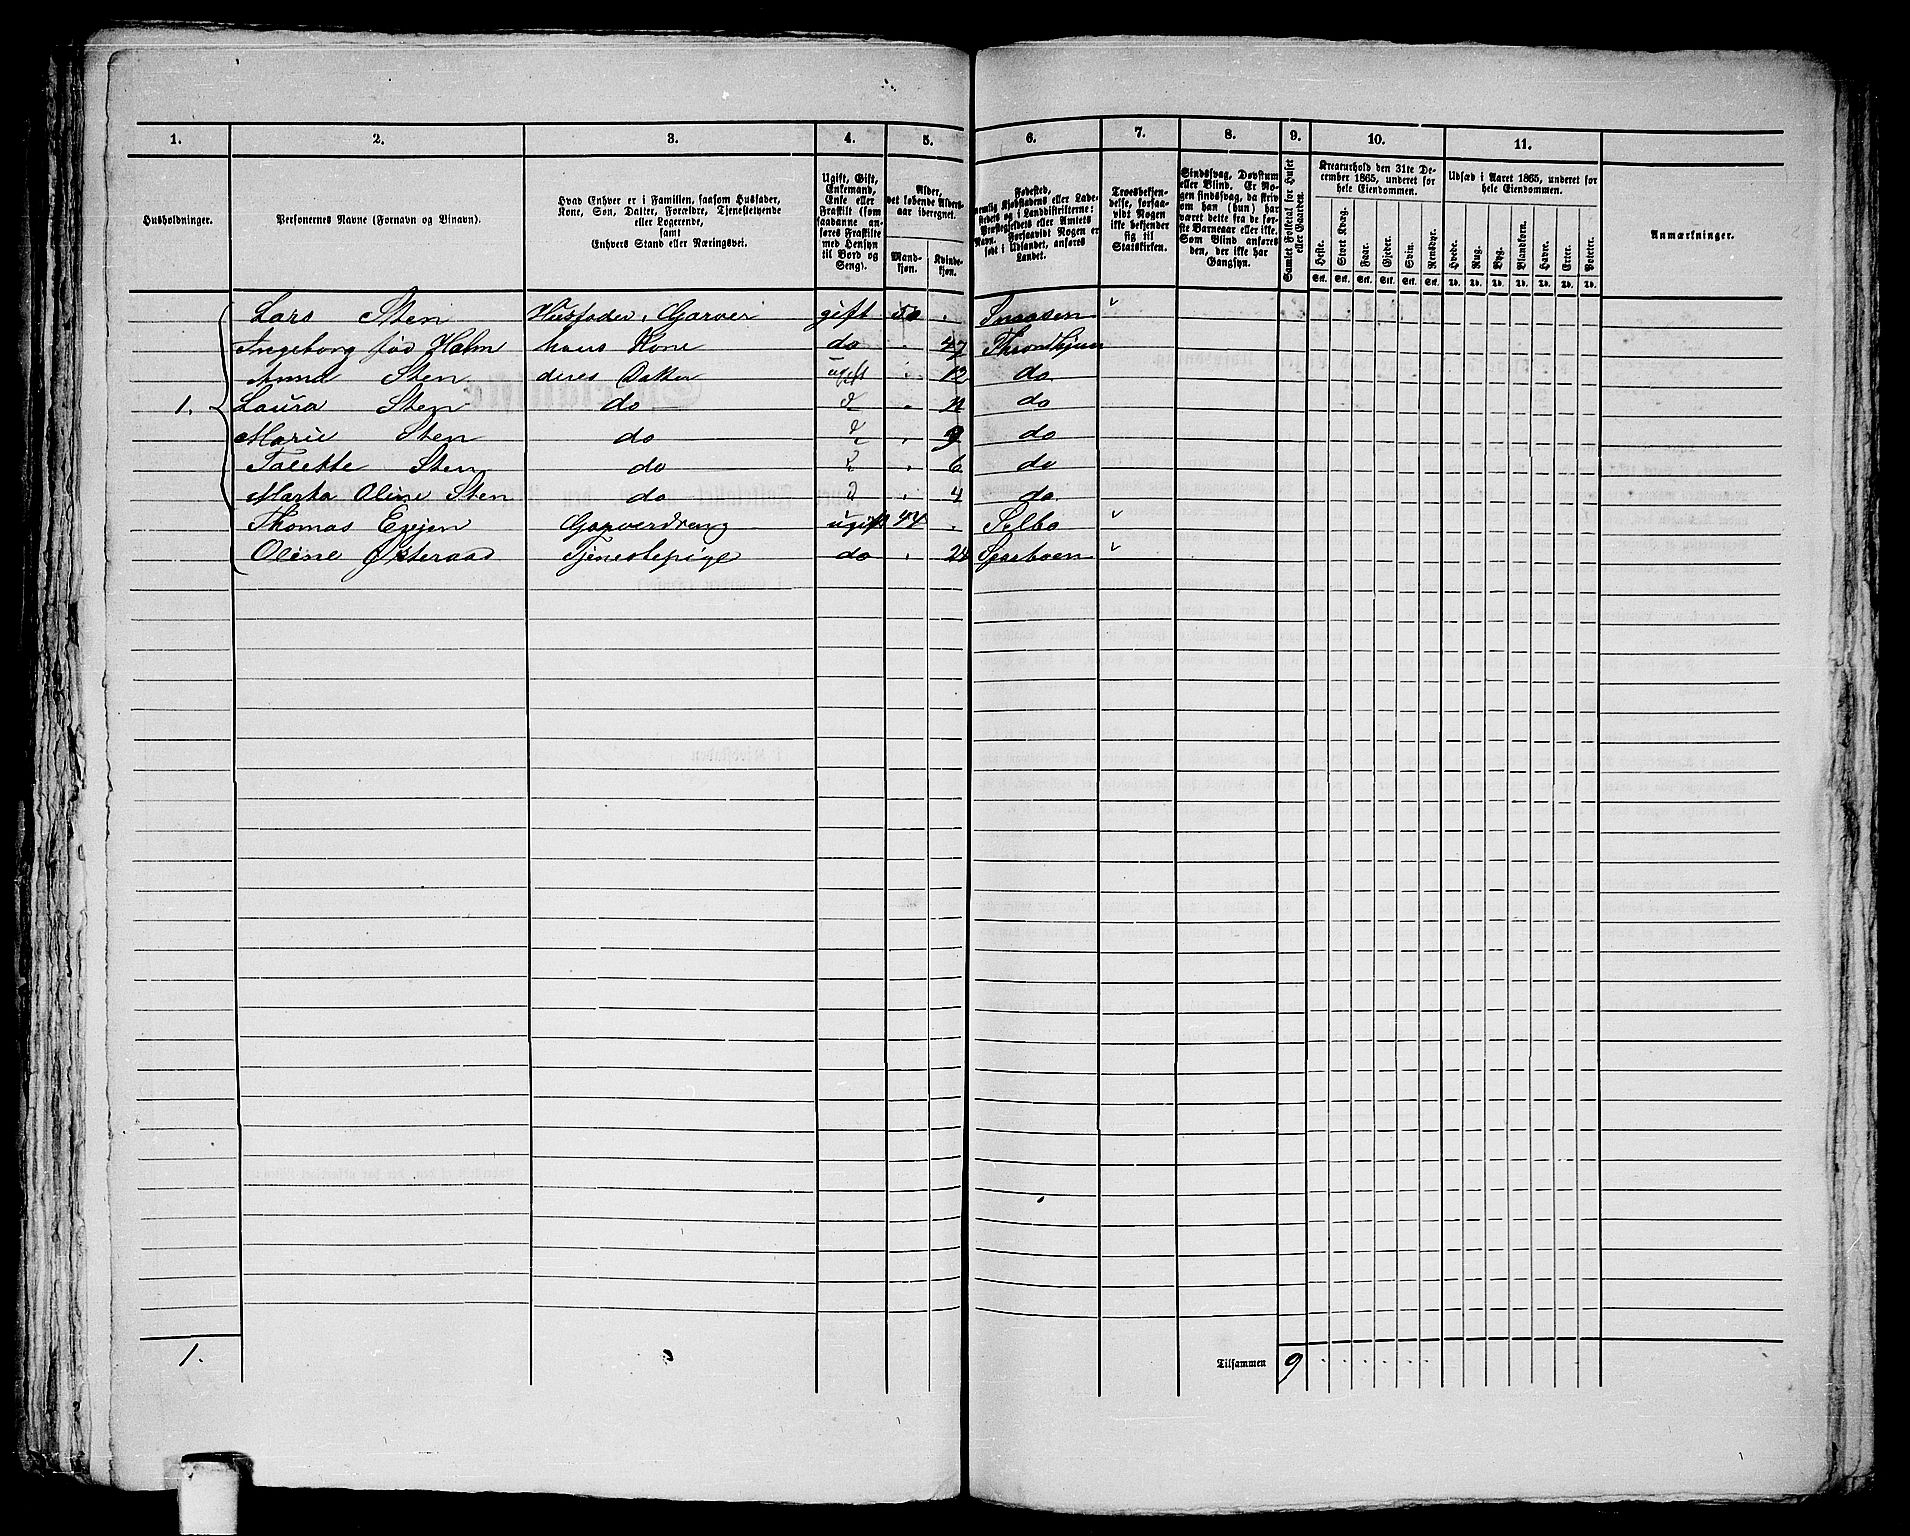 1. 2. 3. 4. 5. 6. 7. 8. 9. 10. 11.
Husholdninger.
Personernes Navne (Fornavn og Binavn).
Hvad Enhver er i Familien, saasom Husfader,
Kone, Søn, Datter, Forældre, Tjenestetyende
eller Logerende,
samt
Enhvers Stand eller Næringsvei.
Ugift, Gift,
Enkemand,
Enke eller
Fraskilt (som
saadanne an-
føres Fraskilte
med Hensyn
til Bord og
Seng).
Alder,
det løbende Alders-
aar iberegnet.
Mand-
kjøn.
Kvinde-
kjøn.
Fødested,
nemlig Kjøbstadens eller Lade-
stedets og i Landdistrikterne:
Præstegjeldets eller Amtets
Navn. Forsaavidt Nogen er
født i Udlandet, anføres
Landet.
Troesbekjen-
delse, forsaa-
vidt Nogen
ikke bekjender
sig til
Statskirken.
Sindssvag, Døvstum
eller Blind. Er No-
gen sindssvag, da skriv
om han (hun) har
været dette fra de før-
ste Barneaar eller ikke.
Som Blind anføres
den, der ikke har
Gangsyn.
Samlet Folketal for Huset
eller Gaarden.
Kreaturhold den 31te De-
cember 1865, underet for
hele Eiendommen.
Heste. Stort Kvæg. Faar. Gjeder. Svin. Rensdyr.
Stk. Stk. Stk. Stk. Stk. Stk.
Udsæd i Aaret 1865, underet for
hele Eiendommen.
Hvede. Rug. Byg. Blandkorn. Havre. Erter. Poteter.
Td. Td. Td. Td. Td. Td. Td.
Anmærkninger.
Lars Sten Husfader, Garver gift 50 . Snaasen
Ingeborg fød Halm hans Kone do . 47 Throndhjem
Anna Sten deres Datter ugift . 12 do
1. Laura Sten do d . 11 do
Marie Sten do d . 9 do
Talette Sten do d . 6 do
Marta Oline Sten do d . 4 do
Thomas Egejen Garverdreng ugift 44 . Selbo
Oline Østeraad Tjenestepige do . 24 Sparboen
1.
Tilsammen 9